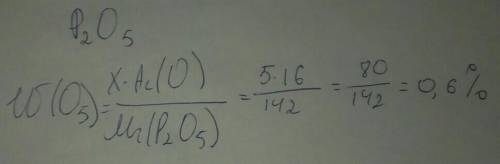 P₂O₅
ω(O₅) = X·Ar(O) / Mr(P₂O₅) = 5·16 / 142 = 80 / 142 = 0,6 %